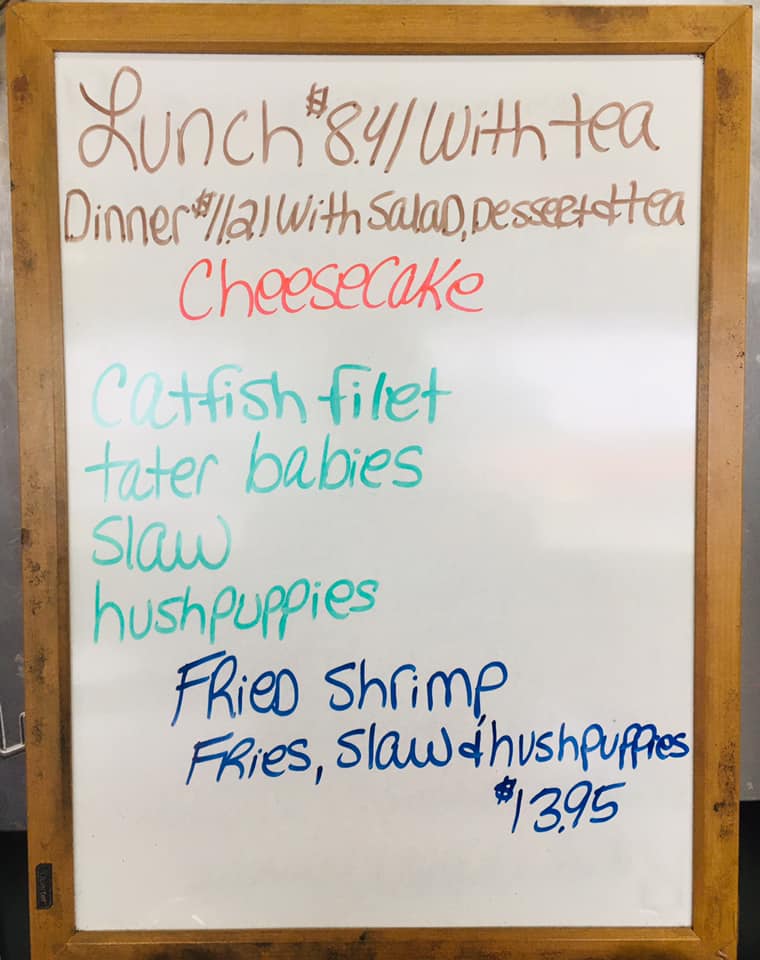 Lunch $8.41 with tea
Dinner $11.21 with Salad, Dessert & tea
Cheesecake
Catfish filet
tater babies
slaw
hushpuppies
Fried Shrimp
Fries, Slaw & hushpuppies
$13.95